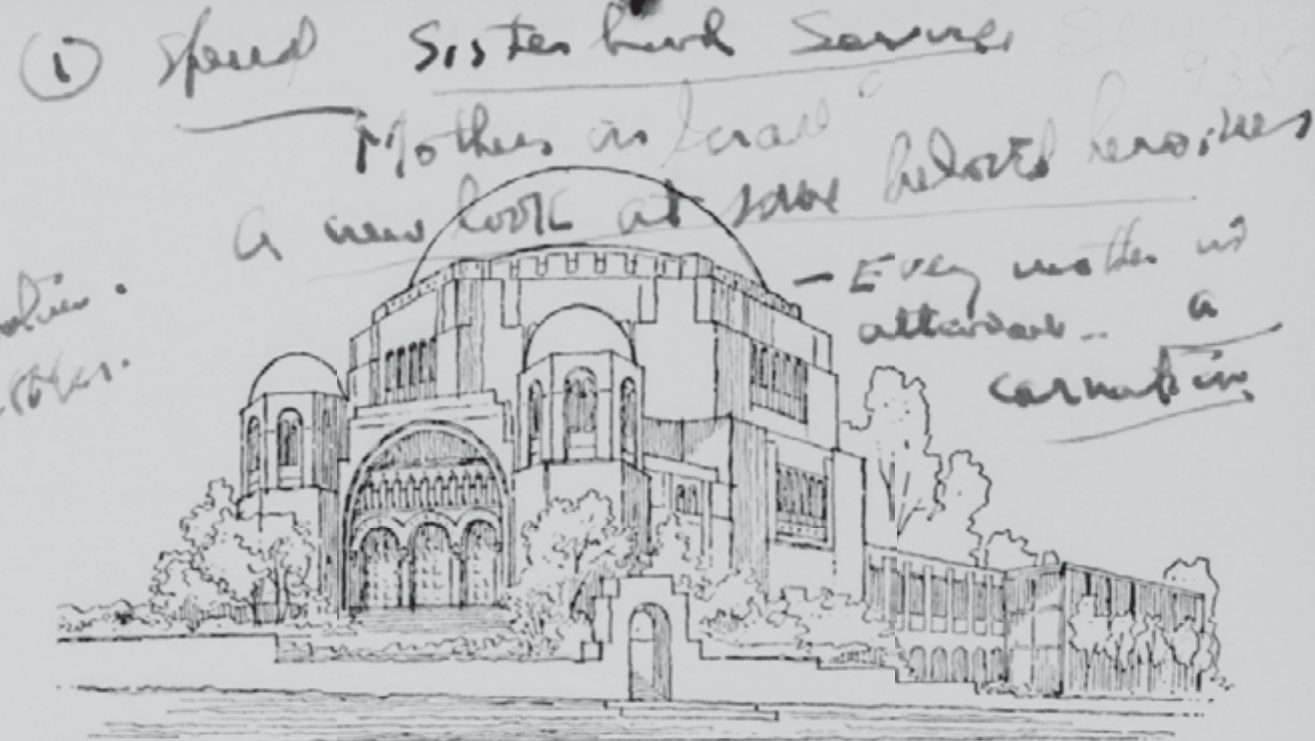 ① Special Sisterhood Service
"Mothers in Israel"
a new look at some beloved heroines
— Every mother in
attendance -- a
carnation